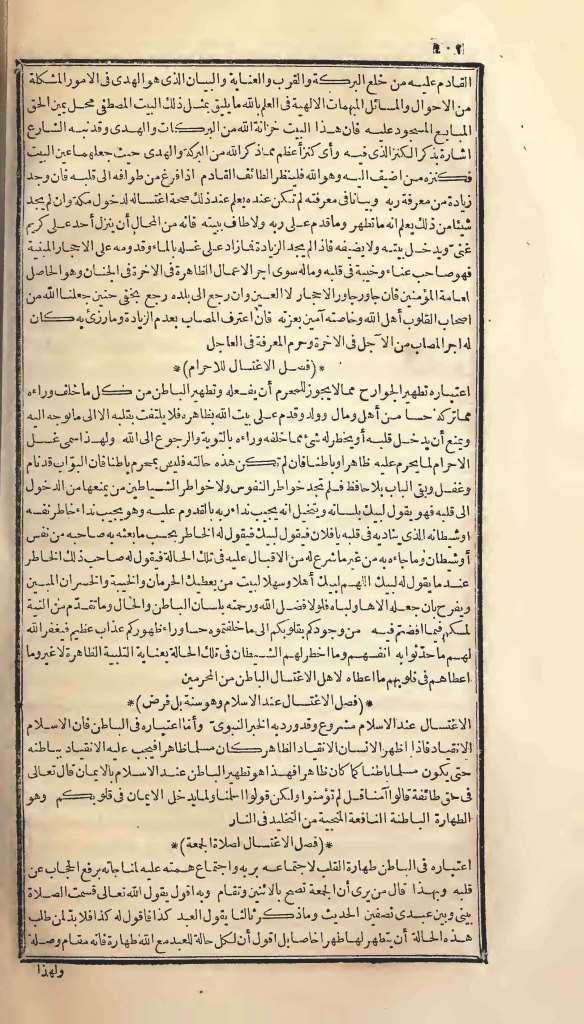 القادم عليه من خلع البركة والقرب والعناية والبيان الذى هو الهدى فى الامور المشكلة
من الاحوال والمسائل المبهمات الالهية فى العلم بالله ما يليق بمثل ذلك البيت المصطفى محل يمين الحق
المبايع المسجود عليه فان هذا البيت خزانة الله من البركات والهدى وقد نبه الشارع
اشارة بذكر الكنز الذى فيه وأى كنز أعظم مما ذكر الله من البركة والهدى حيث جعلهما عين البيت
فكنزه من اضيف اليه وهو الله فلينظر الطائف القادم اذا فرغ من طوافه الى قلبه فان وجد
زيادة من معرفة ربه وبيانا فى معرفته لم تكن عنده يعلم عند ذلك صحة اغتساله لدخول مكة وان لم يجد
شيئا من ذلك يعلم انه ما تطهر وما قدم على ربه ولا طاف ببيته فانه من المحال أن ينزل أحد على كريم
غنى ويدخل بيته ولا يضيفه فاذا لم يجد الزيادة فما زاد على غسله بالماء وقدومه على الاحجار المبنية
فهو صاحب عناء وخيبة فى قلبه وماله سوى اجر الاعمال الظاهرة فى الآخرة فى الجنان وهو الحاصل
لعامة المؤمنين فان جاور جاور الاحجار لا العين وان رجع الى بلده رجع بخفى حنين جعلنا الله من
اصحاب القلوب أهل الله وخاصته آمين بعزته فان اعترف المصاب بعدم الزيادة وما رزئ به كان
له اجر المصاب من الآجر فى الاخرة وحرم المعرفة فى العاجل
*(فصل الاغتسال للاحرام)*
اعتباره تطهير الجوارح مما لا يجوز للمحرم أن يفعله وتطهير الباطن من كل ما خلف وراءه
مما تركه حسا من أهل ومال وولد وقدم على بيت الله بظاهره فلا يلتفت بقلبه الا الى ما توجه اليه
ويمنع أن يدخل قلبه أو يخطر له شئ مما خلفه وراءه بالتوبة والرجوع الى الله ولهذا سمى غسل
الاحرام لما يحرم عليه ظاهرا وباطنا فان لم تكن هذه حالته فليس بمحرم باطنا فان البواب قد نام
وغفل وبقى الباب بلا حافظ فلم تجد خواطر النفوس ولا خواطر الشياطين من يمنعها من الدخول
الى قلبه فهو يقول لبيك بلسانه ويتخيل انه يجيب نداء ربه بالقدوم عليه وهو يجيب نداء خاطر نفسه
أو شيطانه الذى يناديه فى قلبه يا فلان فيقول لبيك فيقول له الخاطر بحسب ما بعثه به صاحبه من نفس
أو شيطان وما جاءه به من غير ما شرع له من الاقبال عليه فى تلك الحالة فيقول له صاحب ذلك الخاطر
عندما يقول له لبيك اللهم لبيك أهلا وسهلا لبيت من يعطيك الحرمان والخيبة والخسران المبين
ويفرح بان جعله الاها ولباه فلولا فضل الله ورحمته بلسان الباطن والحال وما تقدم من النية
لمسكم فيما افضتم فيه من وجودكم بقلوبكم الى ما خلفتموه حسا وراء ظهوركم عذاب عظيم فيغفر الله
لهم ما حدثوا به انفسهم وما اخطر لهم الشيطان فى تلك الحالة بعناية التلبية الظاهرة لا غير وما
اعطاهم فى قلوبهم ما اعطاه لاهل الاغتسال الباطن من المحرمين
*(فصل الاغتسال عند الاسلام وهو سنة بل فرض)*
الاغتسال عند الاسلام مشروع وقد ورد به الخبر النبوى وأما اعتباره فى الباطن فان الاسلام
الانقياد فاذا اظهر الانسان الانقياد الظاهر كان مسلما ظاهرا فيجب عليه الانقياد بباطنه
حتى يكون مسلما باطنا كما كان ظاهرا فهذا هو تطهير الباطن عند الاسلام بالايمان قال تعالى
فى حق طائفة قالوا آمنا قل لم تؤمنوا ولكن قولوا اسلمنا ولما يدخل الايمان فى قلوبكم وهو
الطهارة الباطنة النافعة المنجية من التخليد فى النار
*(فصل الاغتسال لصلاة الجمعة)*
اعتباره فى الباطن طهارة القلب لاجتماعه بربه واجتماع همته عليه لمناجاته برفع الحجاب عن
قلبه وبهذا قال من يرى أن الجمعة تصح بالاثنين وتقام وبه اقول يقول الله تعالى قسمت الصلاة
بينى وبين عبدى نصفين الحديث وما ذكر ثالثا يقول العبد كذا فاقول له كذا فلا بد لمن طلب
هذه الحالة أن يتطهر لها طهرا خاصا بل اقول أن لكل حالة للعبد مع الله طهارة فانه مقام وصلة
ولهذا